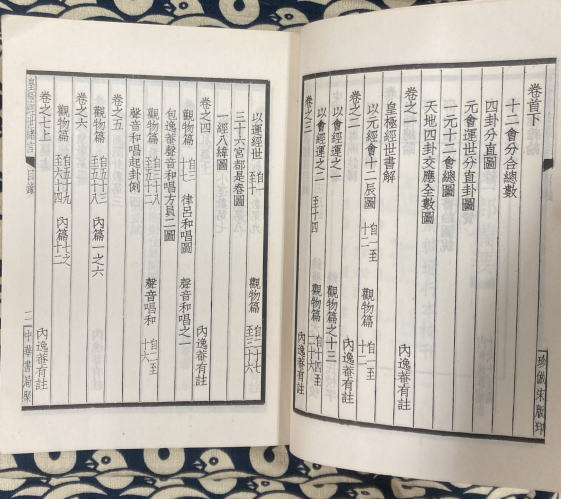 卷首下
十二會分合總數
四卦分直圖
元會運世分直卦圖
一元十二會總圖
天地四卦交應全數圖
卷之一
內逸菴有註
皇極經世書解
以元經會十二辰圖 自一至十二 觀物篇 自一至十二
卷之二
以會經運之一 觀物篇之十三
以會經運之二 至十四 觀物篇 自十四至
卷之三
內逸菴有註
珍倣宋版印
以運經世 觀物篇 自二十七至三十六
三十六宮都是春圖
一經八緯圖
卷之四
內逸菴有註
觀物篇 律呂和唱圖 聲音唱和之一
包逸菴聲音和唱方員二圖
觀物篇 自三十八至五十二 聲音唱和 自一至十六
聲音和唱起卦例
卷之五
觀物篇 自五十三至五十八 內篇一之六
卷之六
觀物篇 自五十九至六十四 內篇七之十二
卷之七上
內逸菴有註
皇極經世緒言 目錄
中華書局聚